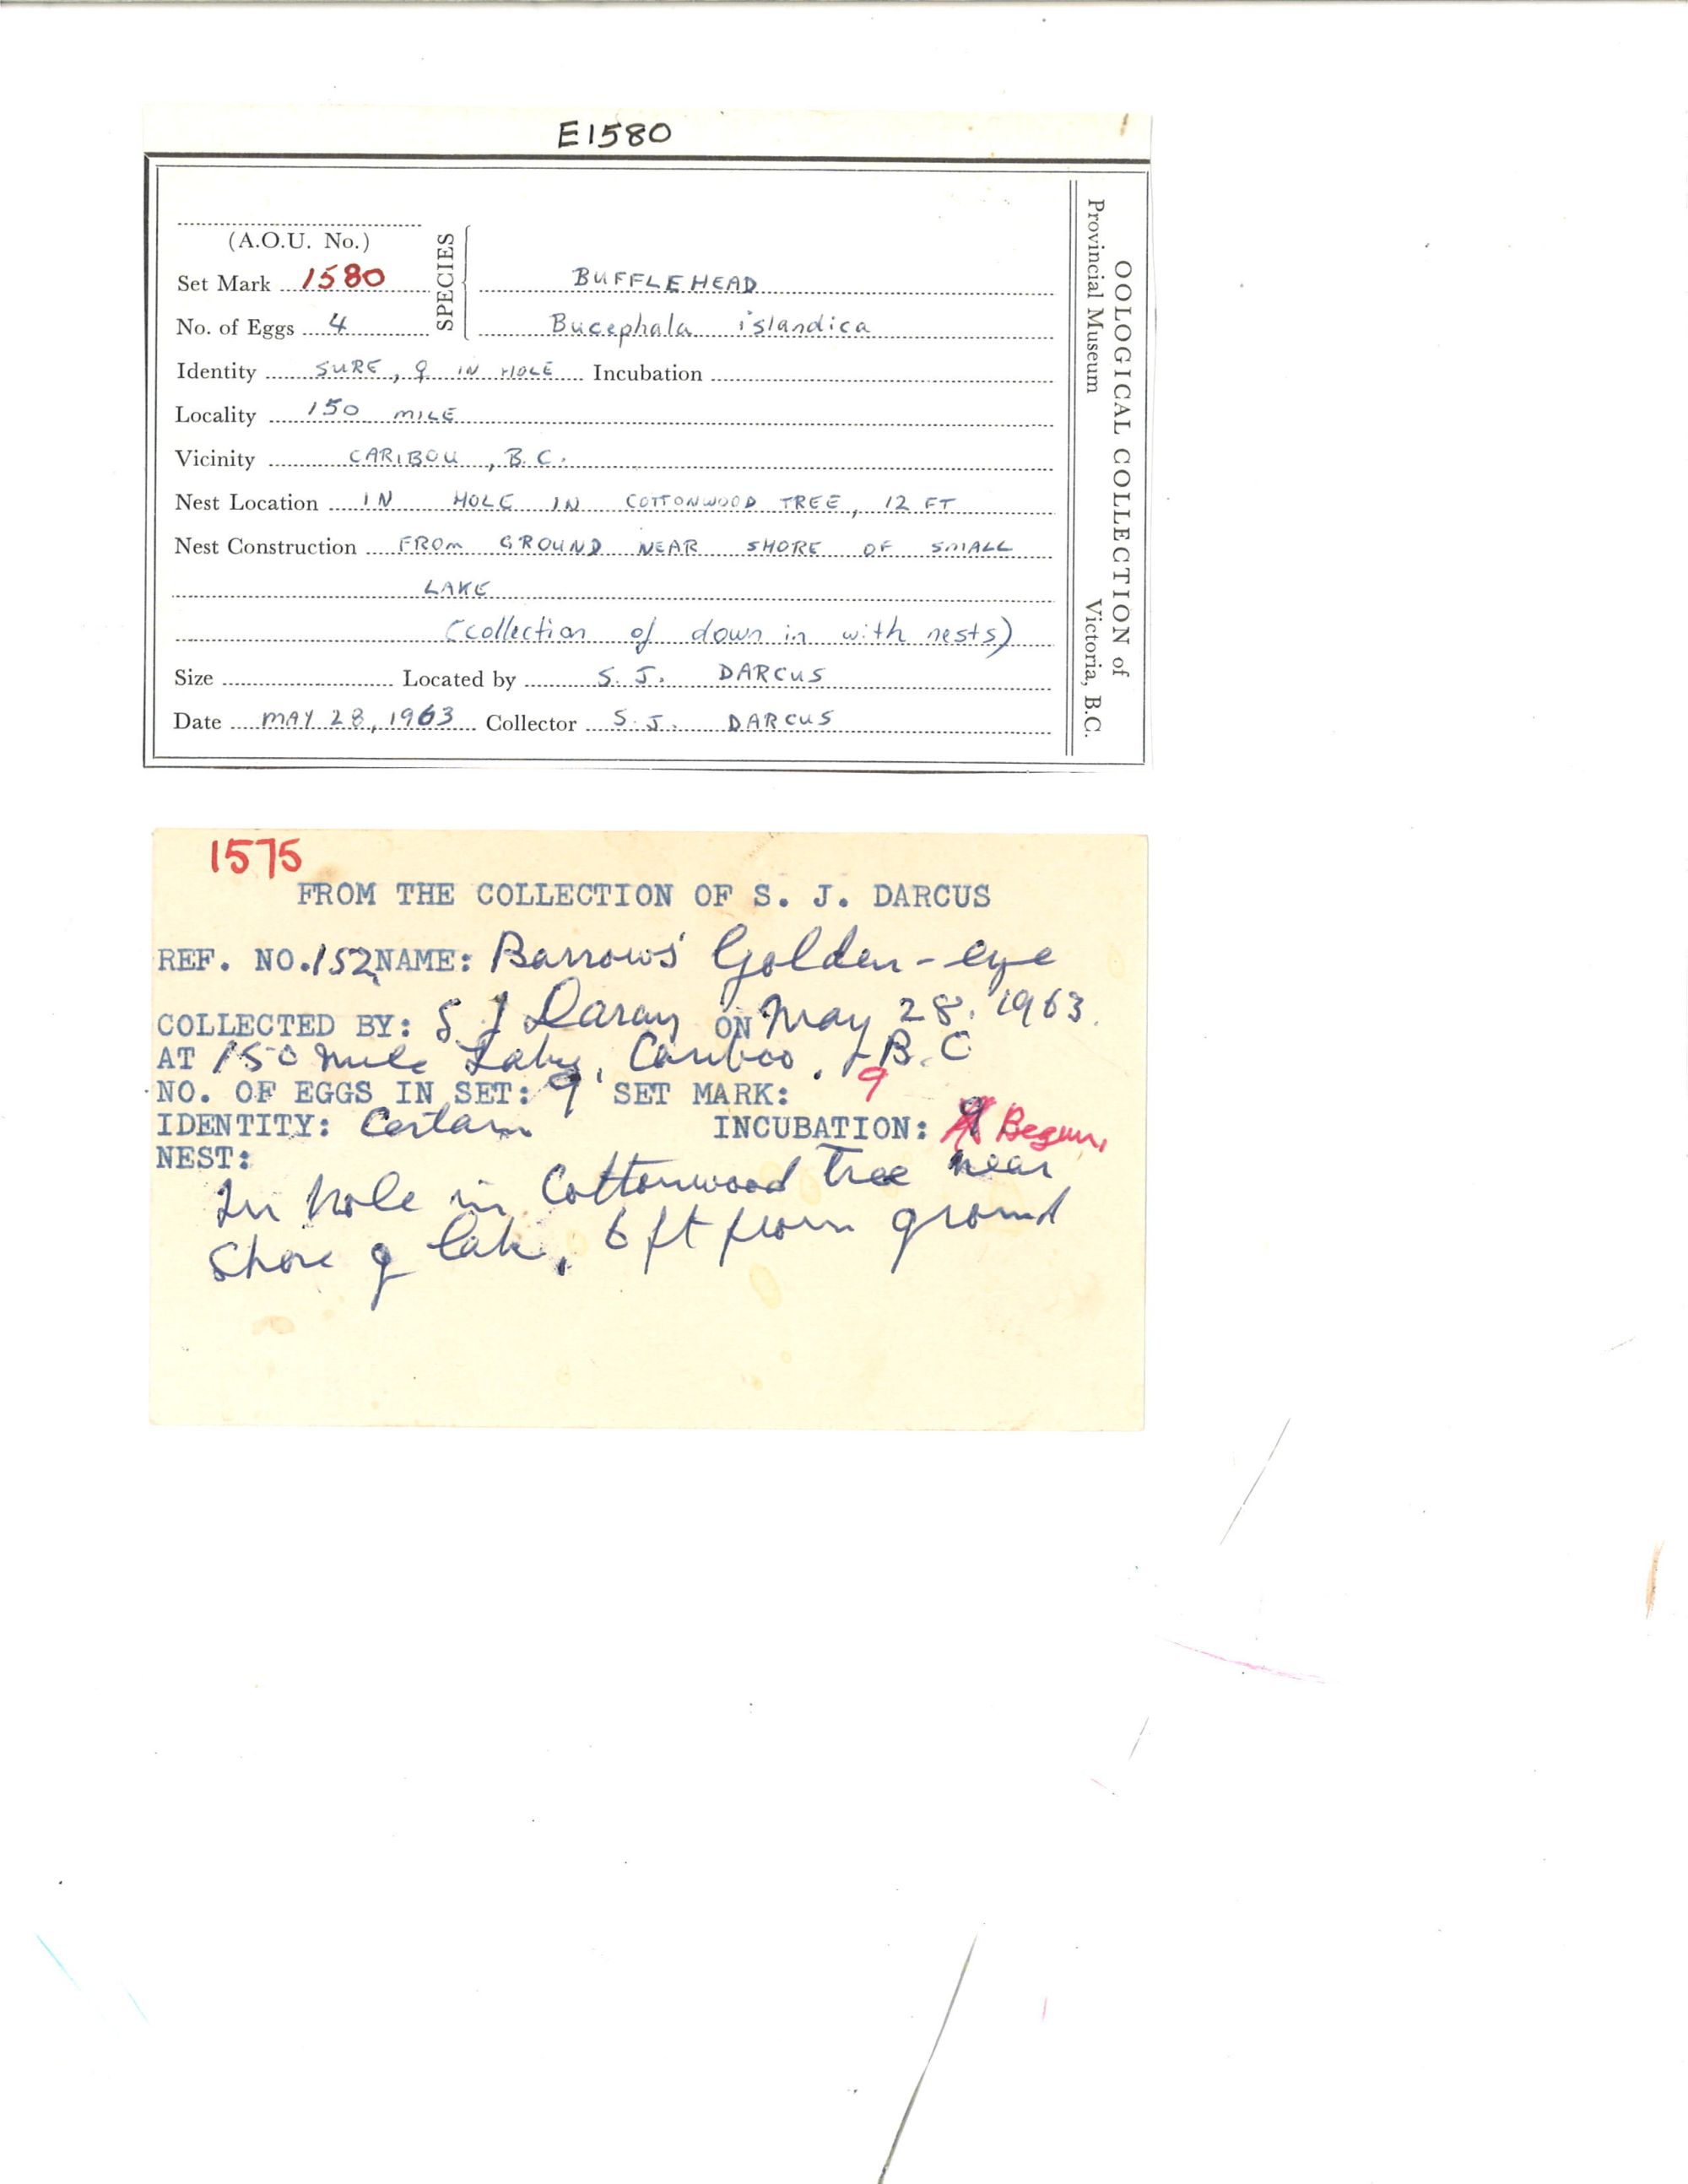 E1580
(A.O.U. No.)
SPECIES
Set Mark 1580 BUFFLEHEAD
No. of Eggs 4 Bucephala islandica
Identity SURE, ♀ IN HOLE Incubation
Locality 150 MILE
Vicinity CARIBOU, B.C.
Nest Location IN HOLE IN COTTONWOOD TREE, 12 FT
Nest Construction FROM GROUND NEAR SHORE OF SMALL
LAKE
(collection of down in with nests)
Size Located by S. J. DARCUS
Date MAY 28, 1963 Collector S. J. DARCUS
OOLOGICAL COLLECTION of
Provincial Museum Victoria, B.C.
1575
FROM THE COLLECTION OF S. J. DARCUS
REF. NO. 152 NAME: Barrows' Golden-eye
COLLECTED BY: S J Darcus ON May 28, 1963.
AT 150 mile Lake, Cariboo, B.C
NO. OF EGGS IN SET: 9 SET MARK: 9
IDENTITY: Certain INCUBATION: Begun,
NEST:
In hole in Cottonwood Tree near
shore of lake, 6 ft from ground